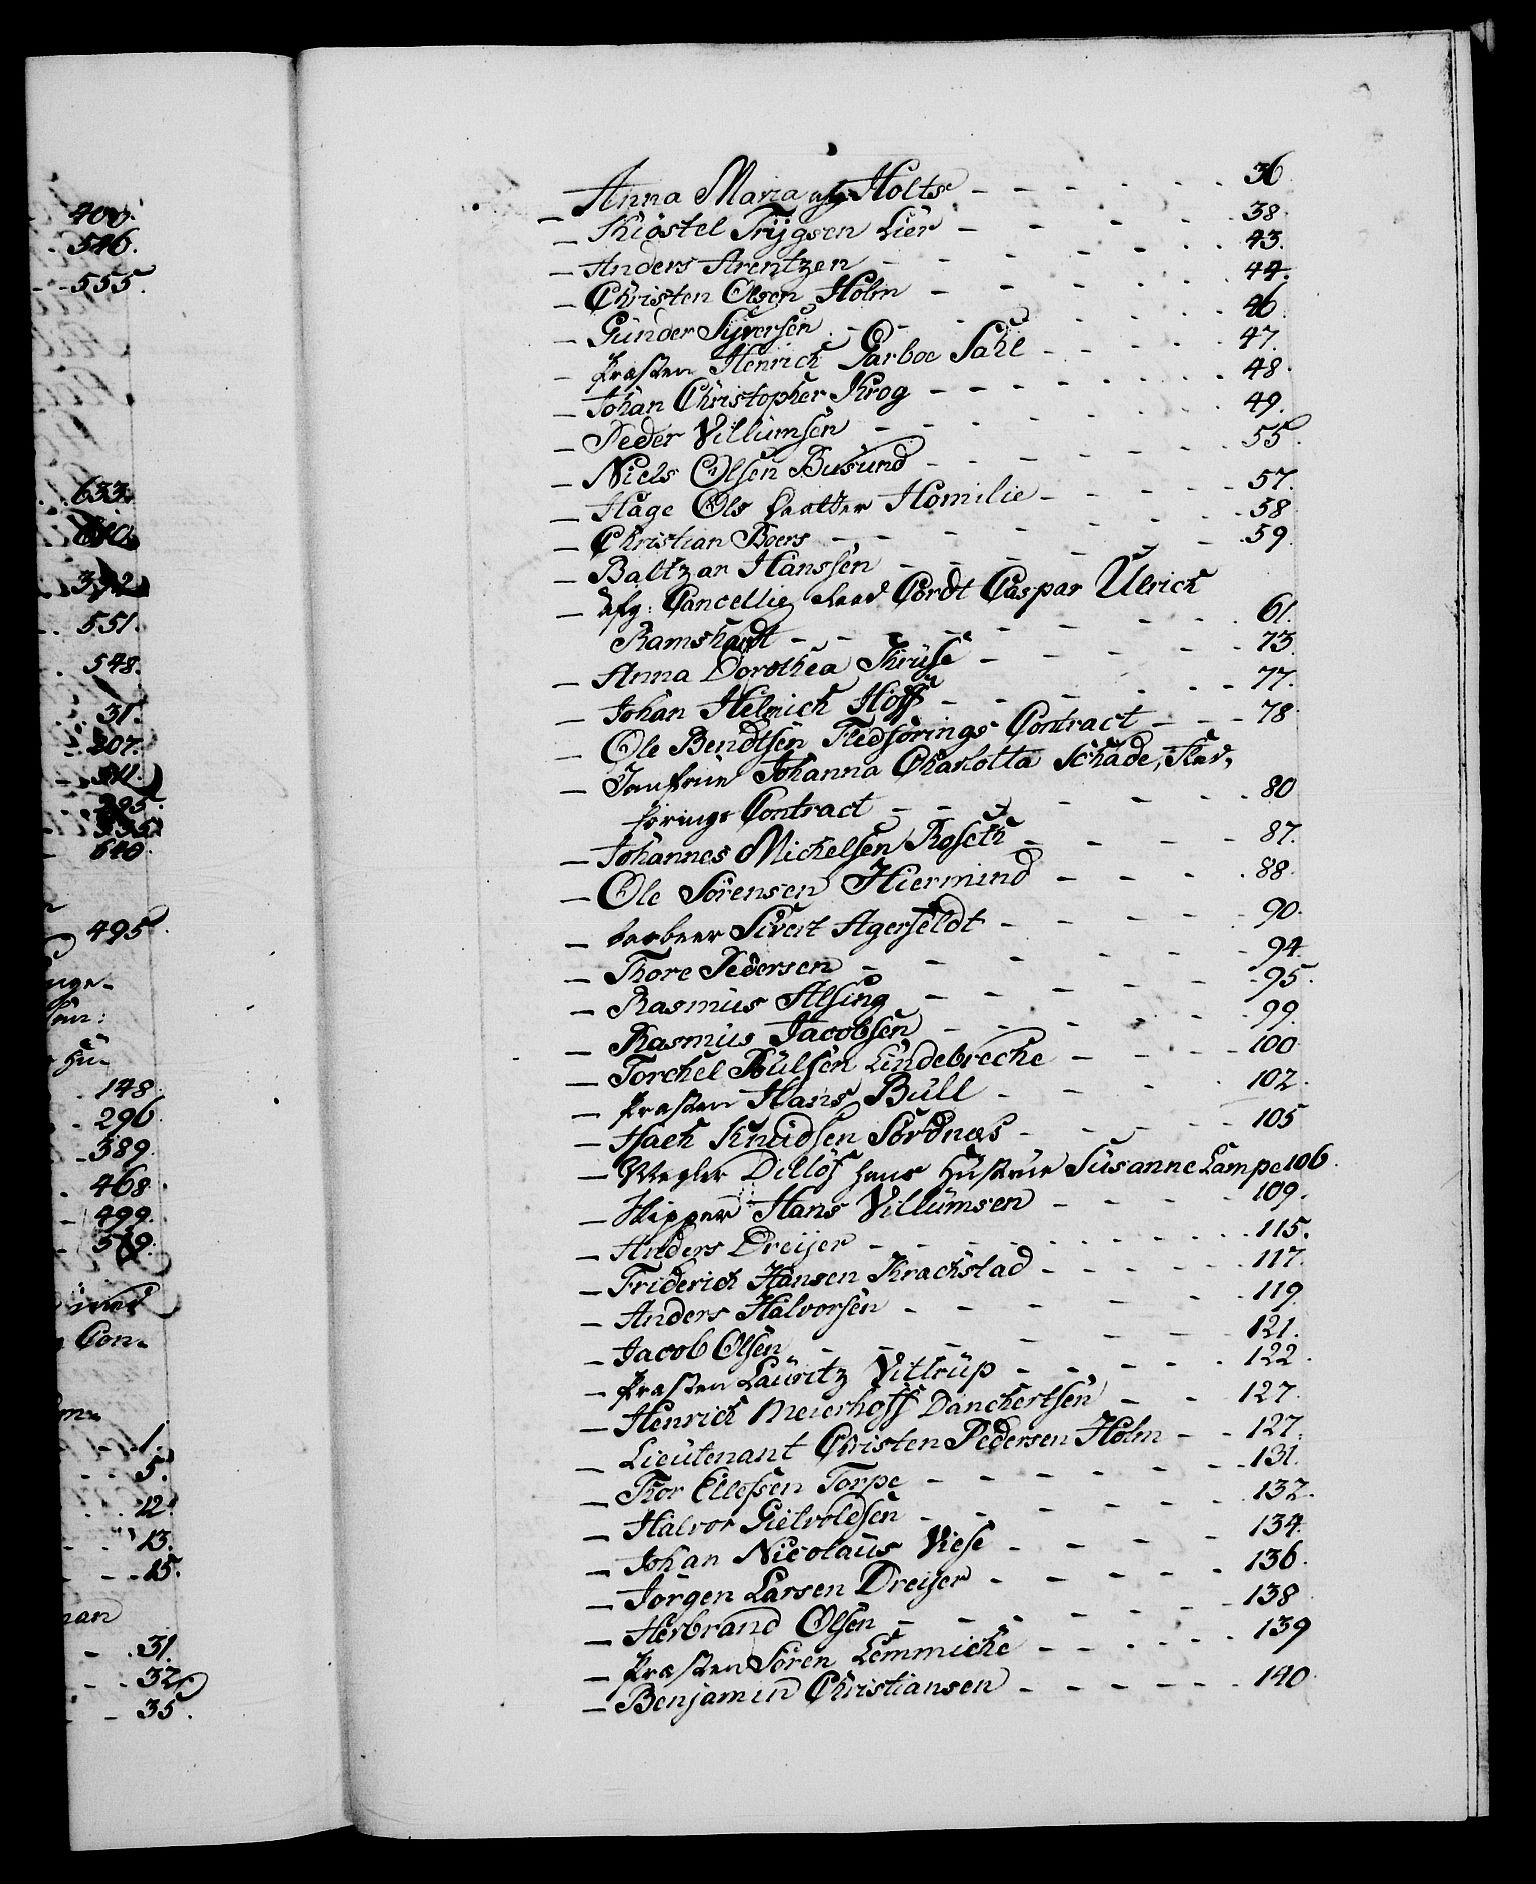 400.
546.
555.
633.
392
551.
548.
31.
207.
311.
295.
535.
640.
495.
148.
296.
389.
468.
499.
579.
Con-
1.
5.
12.
13.
15.
31.
32.
35.
Anna Maria afg: Holts - - - - - - 36
— Kiöstel Trÿgsen Lier - - - - - - 38.
— Anders Arentzen - - - - - - 43.
— Christen Olsen Holm - - - - - - 44.
— Günder Sÿversen - - - - - - 46
— Præsten Henrich Garboe Sahl - - - - - 47.
— Johan Christopher Krog - - - - - - 48.
— Peder Villumsen - - - - - - 49.
— Niels Olsen Busund - - - - - - 55.
— Hage Ols Homilie - - - - - 57.
— Christian Boers - - - - - - 58
— Baltzar Hanssen - - - - - - 59.
— Afg: Cancellie Raad Cordt Caspar Ulrich
Ramshardt - - - - - - 61.
— Anna Dorothea Krüse - - - - - 73.
— Johan Helmich Hoff - - - - - - 77.
— Ole Bendtsen Fledförings Contract - - - 78.
— Jomfrue Johanna Charlotta Schade, Fled-
förings Contract - - - - - - 80
— Johannes Michelsen Roseth - - - - - 87.
— Ole Sörensen Hiermind - - - - 88.
— Sivert Agerfeldt - - - - - 90.
— Thore Pedersen - - - - - - 94.
— Rasmus Alsing - - - - - - 95.
— Rasmus Jacobsen - - - - - - 99.
— Torchel Bülsen Lindebrecke - - - - 100
— Præsten Hans Büll - - - - - 102.
— Isach Knudsen Sördnæs - - - - - 105
— Mægler Ditlöf hans Hustrue Susanne Lampe 106.
— Skipper Hans Villumsen - - - - - 109.
— Anders Dreijer - - - - - - 115.
— Friderich Hansen Krachstad - - - - - 117.
— Anders Halvorsen - - - - - - 119.
— Jacob Olsen - - - - - - 121.
— Præsten Lauritz Vittrüp - - - - - 122.
— Henrich Meierhoff Danchertsen - - - 127.
— Lieutenant Christen Pedersen Holm - - 127.
— Thor Ellefsen Torpe - - - - - - 131.
— Halvor Gietvoldsen - - - - - 132.
— Johan Nicolaus Viese - - - - - 134.
— Jörgen Larsen Dreijer - - - - - 136.
— Herbrand Olsen - - - - - - 138
— Præsten Sören Lemmiche - - - - - 139
— Benjamin Christiansen - - - - - - 140.